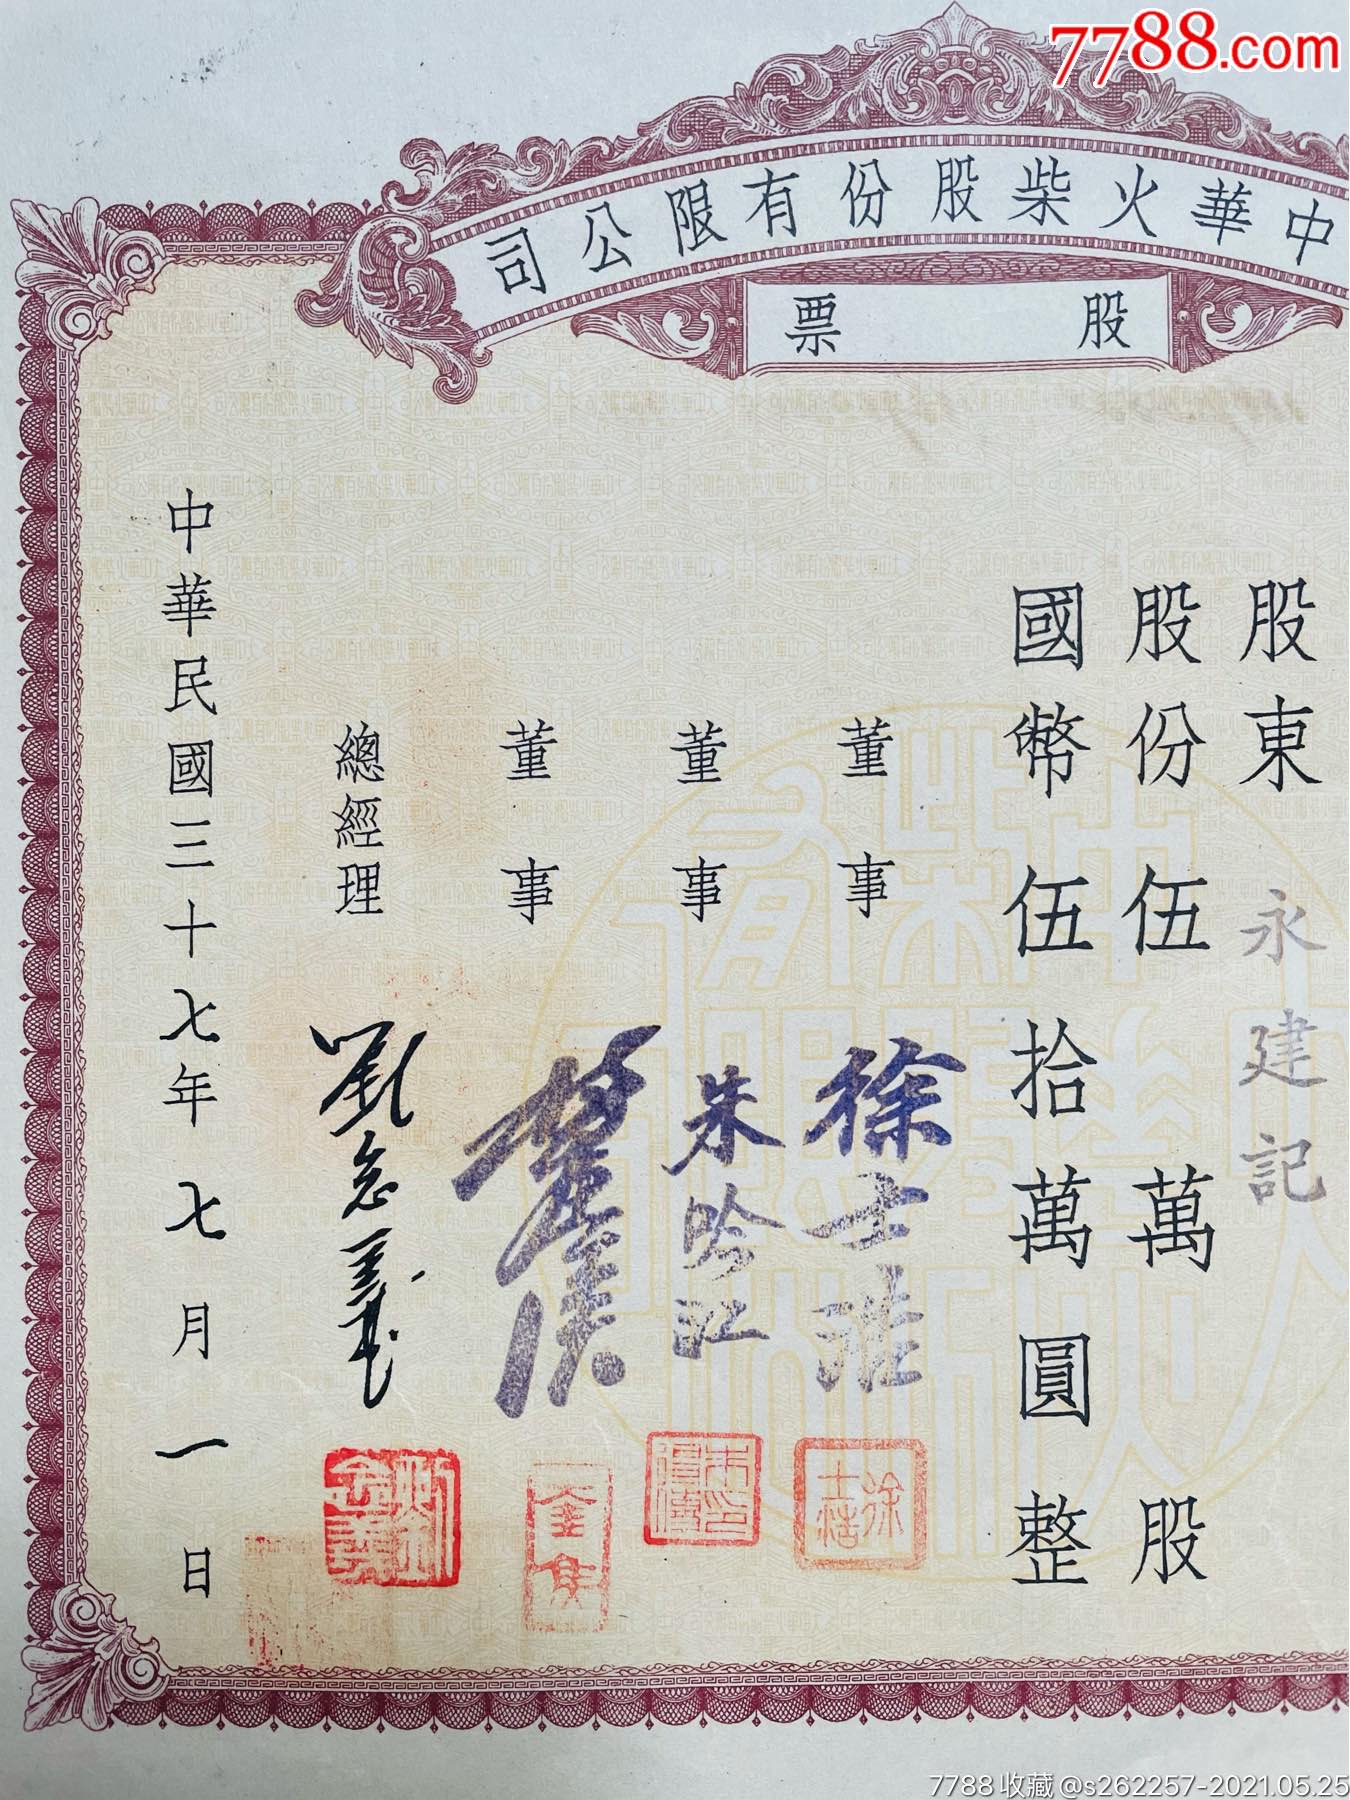 7788.com
中華火柴股份有限公司
股票
股東 永建記
股份伍萬股
國幣伍拾萬圓整
董事 徐士浩
董事 朱吟江
董事
總經理 劉念義
中華民國三十七年七月一日
徐士浩
7788收藏@s262257-2021.05.25